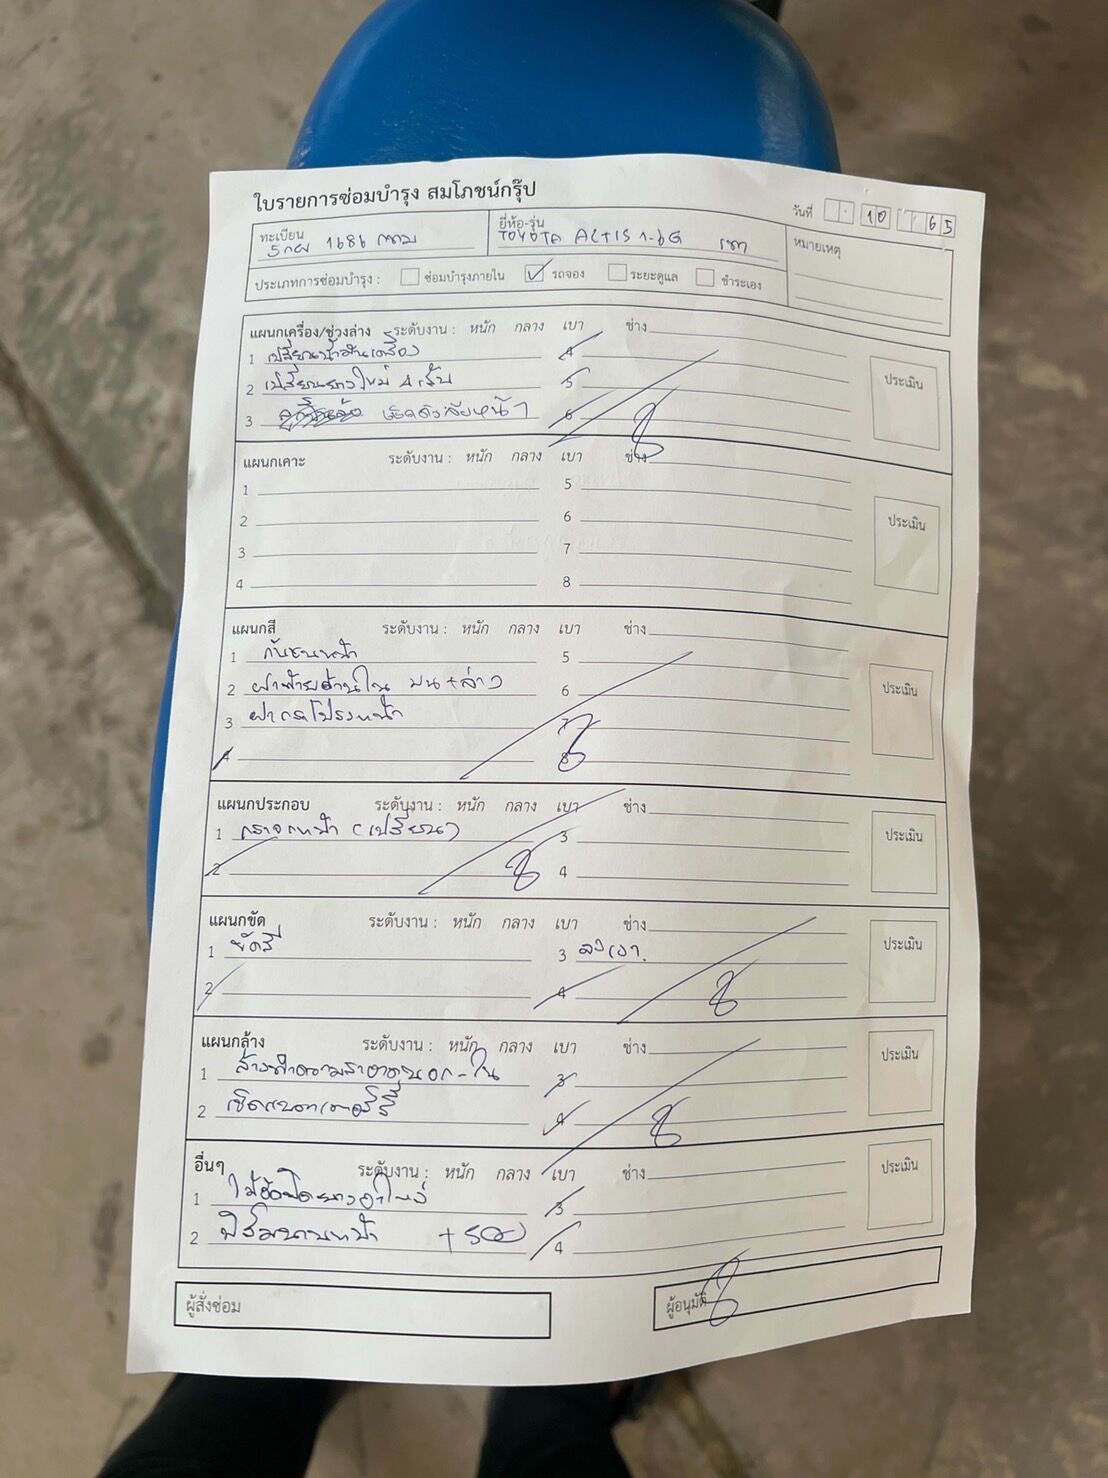 ใบรายการซ่อมบำรุง สมโภชน์กรุ๊ป
วันที่ 10 65
ทะเบียน 5กฌ 1686 กทม
ยี่ห้อ-รุ่น TOYOTA ALTIS 1.6G เทา
หมายเหตุ
ประเภทการซ่อมบำรุง : ซ่อมบำรุงภายใน รถจอง ระยะดูแล ชำระเอง
แผนกเครื่อง/ช่วงล่าง ระดับงาน : หนัก กลาง เบา ช่าง
1 เปลี่ยนน้ำมันเครื่อง 4
2 เปลี่ยนยางใหม่ 4 เส้น 5
3 หน้า 6
ประเมิน
แผนกเคาะ ระดับงาน : หนัก กลาง เบา ช่าง
1 5
2 6
3 7
4 8
ประเมิน
แผนกสี ระดับงาน : หนัก กลาง เบา ช่าง
1 กันชนหน้า 5
2 ฝาท้ายด้านใน บน+ล่าง 6
3 ฝากระโปรงหน้า 7
4 8
ประเมิน
แผนกประกอบ ระดับงาน : หนัก กลาง เบา ช่าง
1 กระจกหน้า (เปลี่ยน) 3
2 4
ประเมิน
แผนกขัด ระดับงาน : หนัก กลาง เบา ช่าง
1 ขัดสี 3 ลงเงา
2 4
ประเมิน
แผนกล้าง ระดับงาน : หนัก กลาง เบา ช่าง
1 ล้างทำความสะอาดนอก-ใน 3
2 เช็คแบตเตอร์รี่ 4
ประเมิน
อื่นๆ ระดับงาน : หนัก กลาง เบา ช่าง
1 3
2 ฟิล์มบานหน้า +500 4
ประเมิน
ผู้สั่งซ่อม
ผู้อนุมัติ